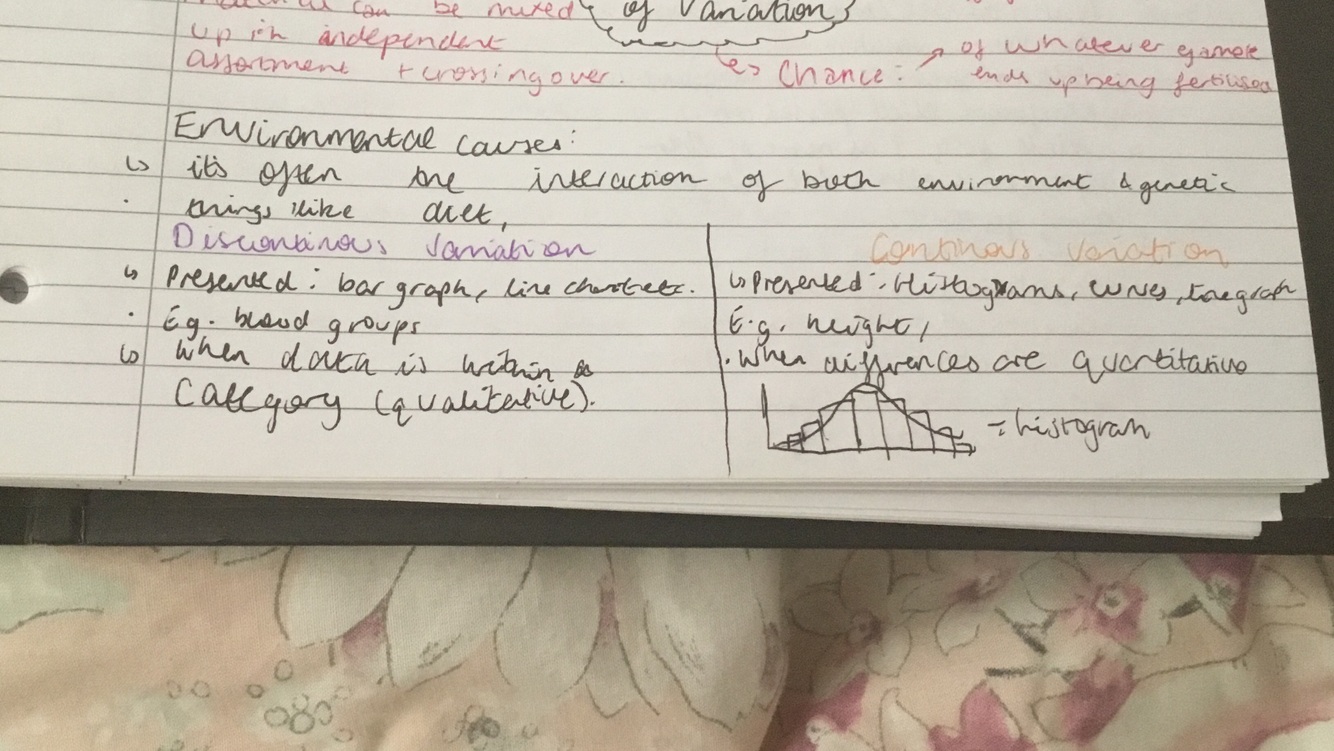 can be mixed
of Variation
up in independent
assortment + crossing over.
↳ Chance: ↗ of whatever gamete
ends up being fertilised
Environmental causes:
↳ it's often the interaction of both environment & genetic
· things like diet,
Discontinous Variation
↳ Presented: bar graph, line chart etc.
· Eg. blood groups
↳ when data is within a
Category (qualitative).
Continous Variation
↳ Presented: Histograms, curves, line graph
E.g. height,
· When differences are quantitative
= histogram